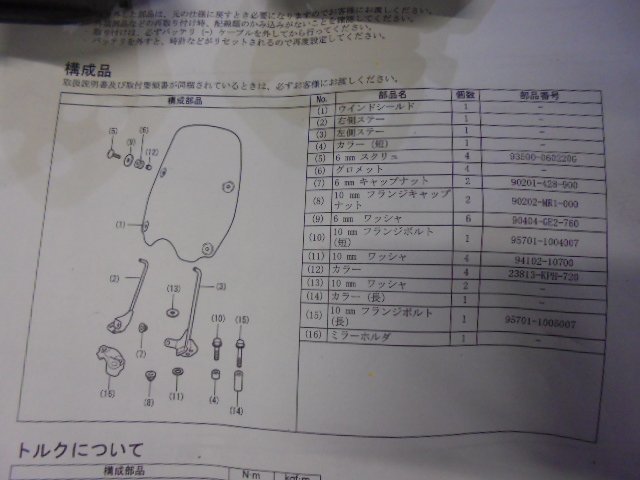 外した部品は、元の仕様に戻すとき必要になりますのでお客様にお渡しください。
取り付けは、必ずバッテリ (-) ケーブルを外してから行ってください。
バッテリを外すと、時計などがリセットされるので再度設定してください。
構成品
取扱説明書及び取付要領書が同梱されているときは、必ずお客様にお渡しください。
構成部品 No. 部品名 個数 部品番号
(1) ウインドシールド 1 -
(2) 右側ステー 1 -
(3) 左側ステー 1 -
(4) カラー (短) 1 -
(5) 6 mm スクリュ 4 93500-060220G
(6) グロメット 4 -
(7) 6 mm キャップナット 2 90201-428-900
(8) 10 mm フランジキャップナット 2 90202-MR1-000
(9) 6 mm ワッシャ 6 90404-GE2-760
(10) 10 mm フランジボルト (短) 1 95701-1004007
(11) 10 mm ワッシャ 4 94102-10700
(12) カラー 4 23813-KPH-720
(13) 10 mm ワッシャ 2 -
(14) カラー (長) 1 -
(15) 10 mm フランジボルト (長) 1 95701-1005007
(16) ミラーホルダ 1 -
(5) (9) (6)
(12)
(1)
(2) (13) (3)
(10) (15)
(7)
(16) (8) (11) (4) (14)
トルクについて
構成部品 N·m kgf·m